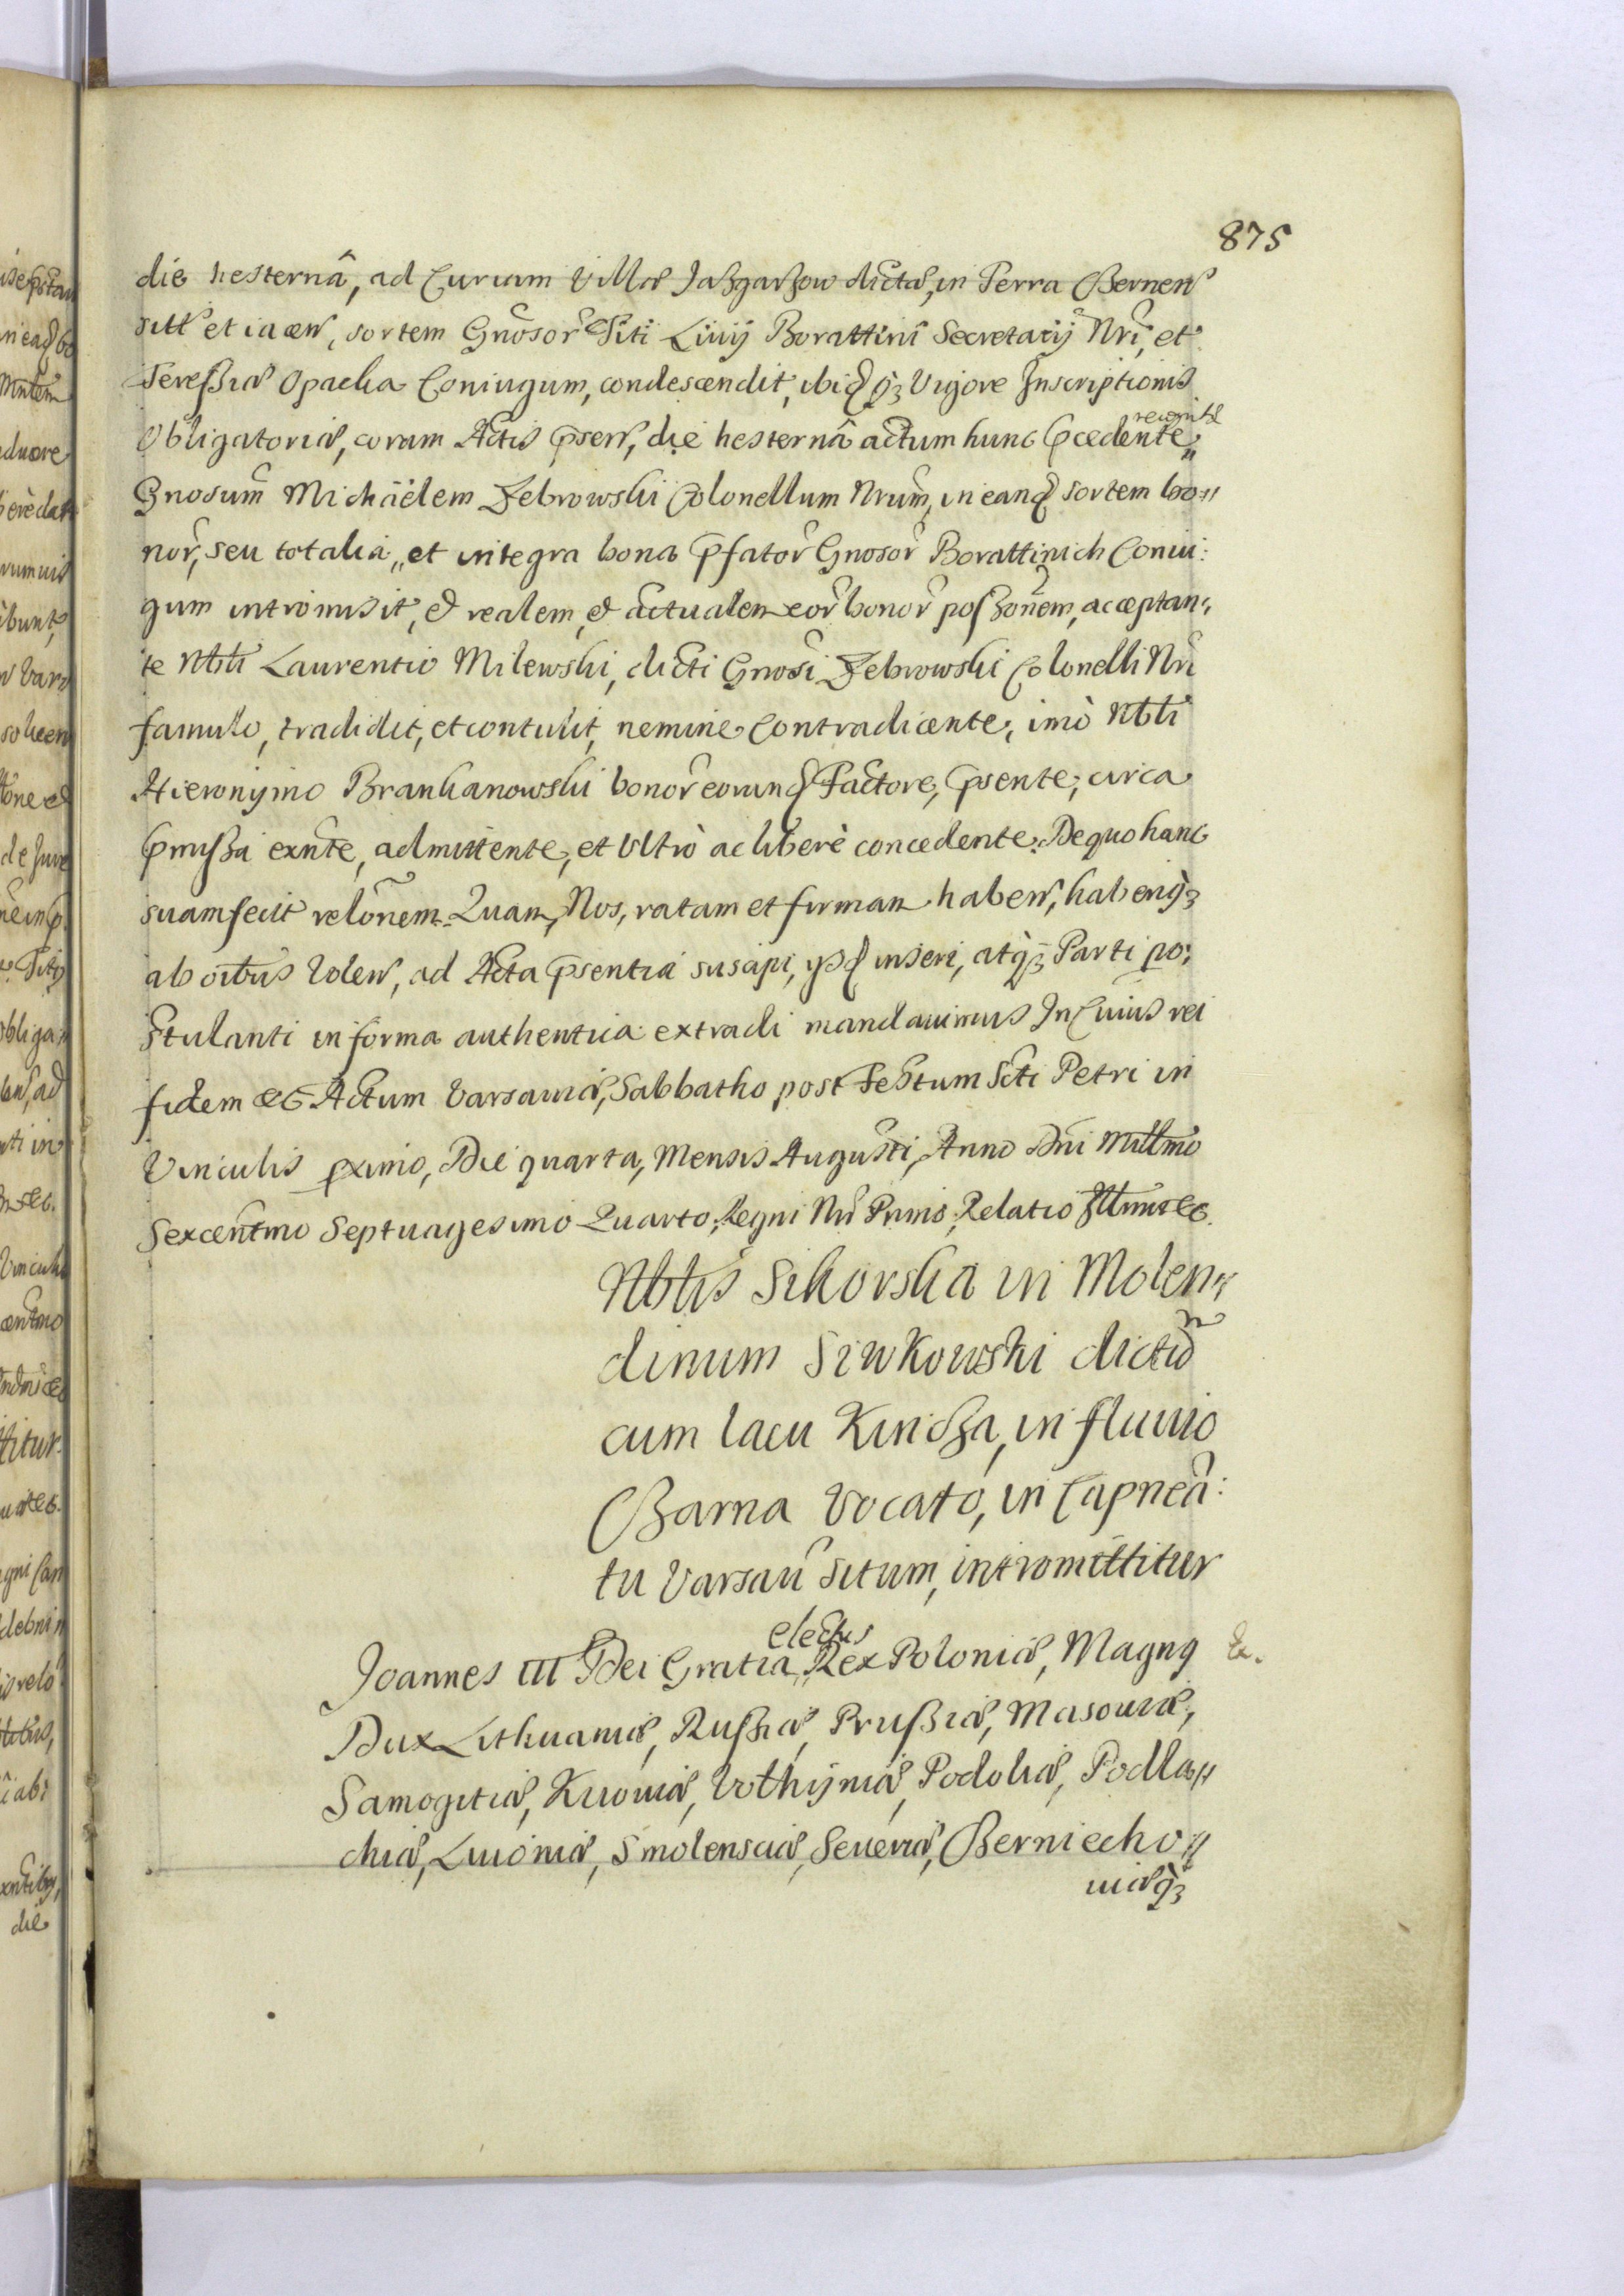 875
die hesternâ, ad Curiam Villæ Jażgarzow dictæ, in Terra Czernen
sitt et iacen, sortem Gnosor Titi Livij Borattini Secretarij Nri, et
Teressiæ Opacka Coniugum, condescendit, ibidq3 Vigore Inscriptionis
recognitæ
Obligatoriæ, coram Actis psen, die hesternâ actum hunc pcedente,,
Gnosum Michäelem Zebrowski Colonellum Nrum, in eand sortem bo„
nor, seu totalia,, et integra bona pfator Gnosor Borattinich Coniu:
gum intromisit, et realem, et actualem eor bonor poss3onem, acceptan„
te Nbli Laurentio Milewski, dicti Gnosi Zebrowski Colonelli Nri
famulo, tradidit, et contulit, nemine Contradicente, imò Nbli
Hieronymo Brankanowski bonor eorund Factore, psente, circa
pmissa exnte, admittente, et Vltrò ac liberè concedente. De quo hanc
suam fecit relonem. Quam, Nos, ratam et firmam haben, haberiq3
ab oibus Volen, ad Acta psentia suscipi, ijsd inseri, atq3 Parti po:
stulanti in forma authentica extradi mandauimus In Cuius rei
fidem etc Actum Varsauiæ, Sabbatho post Festum Scti Petri in
Vinculis pximo, Die quarta, Mensis Augusti, Anno Dni Millmo
Sexcentmo Septuagesimo Quarto, Regni Nri Primo, Relatio Illmi etc.
Nblis Sikorska in Molen„
dinum Siwkowski dictu
m
cum lacu Kincza, in fluuio
Czarna Vocato, in Capnea:
tu Varsau situm, intromittitur
electus
Joannes III Dei Gratia,, Rex Poloniæ, Magnq &.
Dux Lithuaniæ, Russiæ, Prussiæ, Masouiæ,
Samogitiæ, Kiiouiæ, Volhyniæ, Podoliæ, Podla„
chiæ, Liuoniæ, Smolensciæ, Seueriæ, Czerniecho„
uiæq3